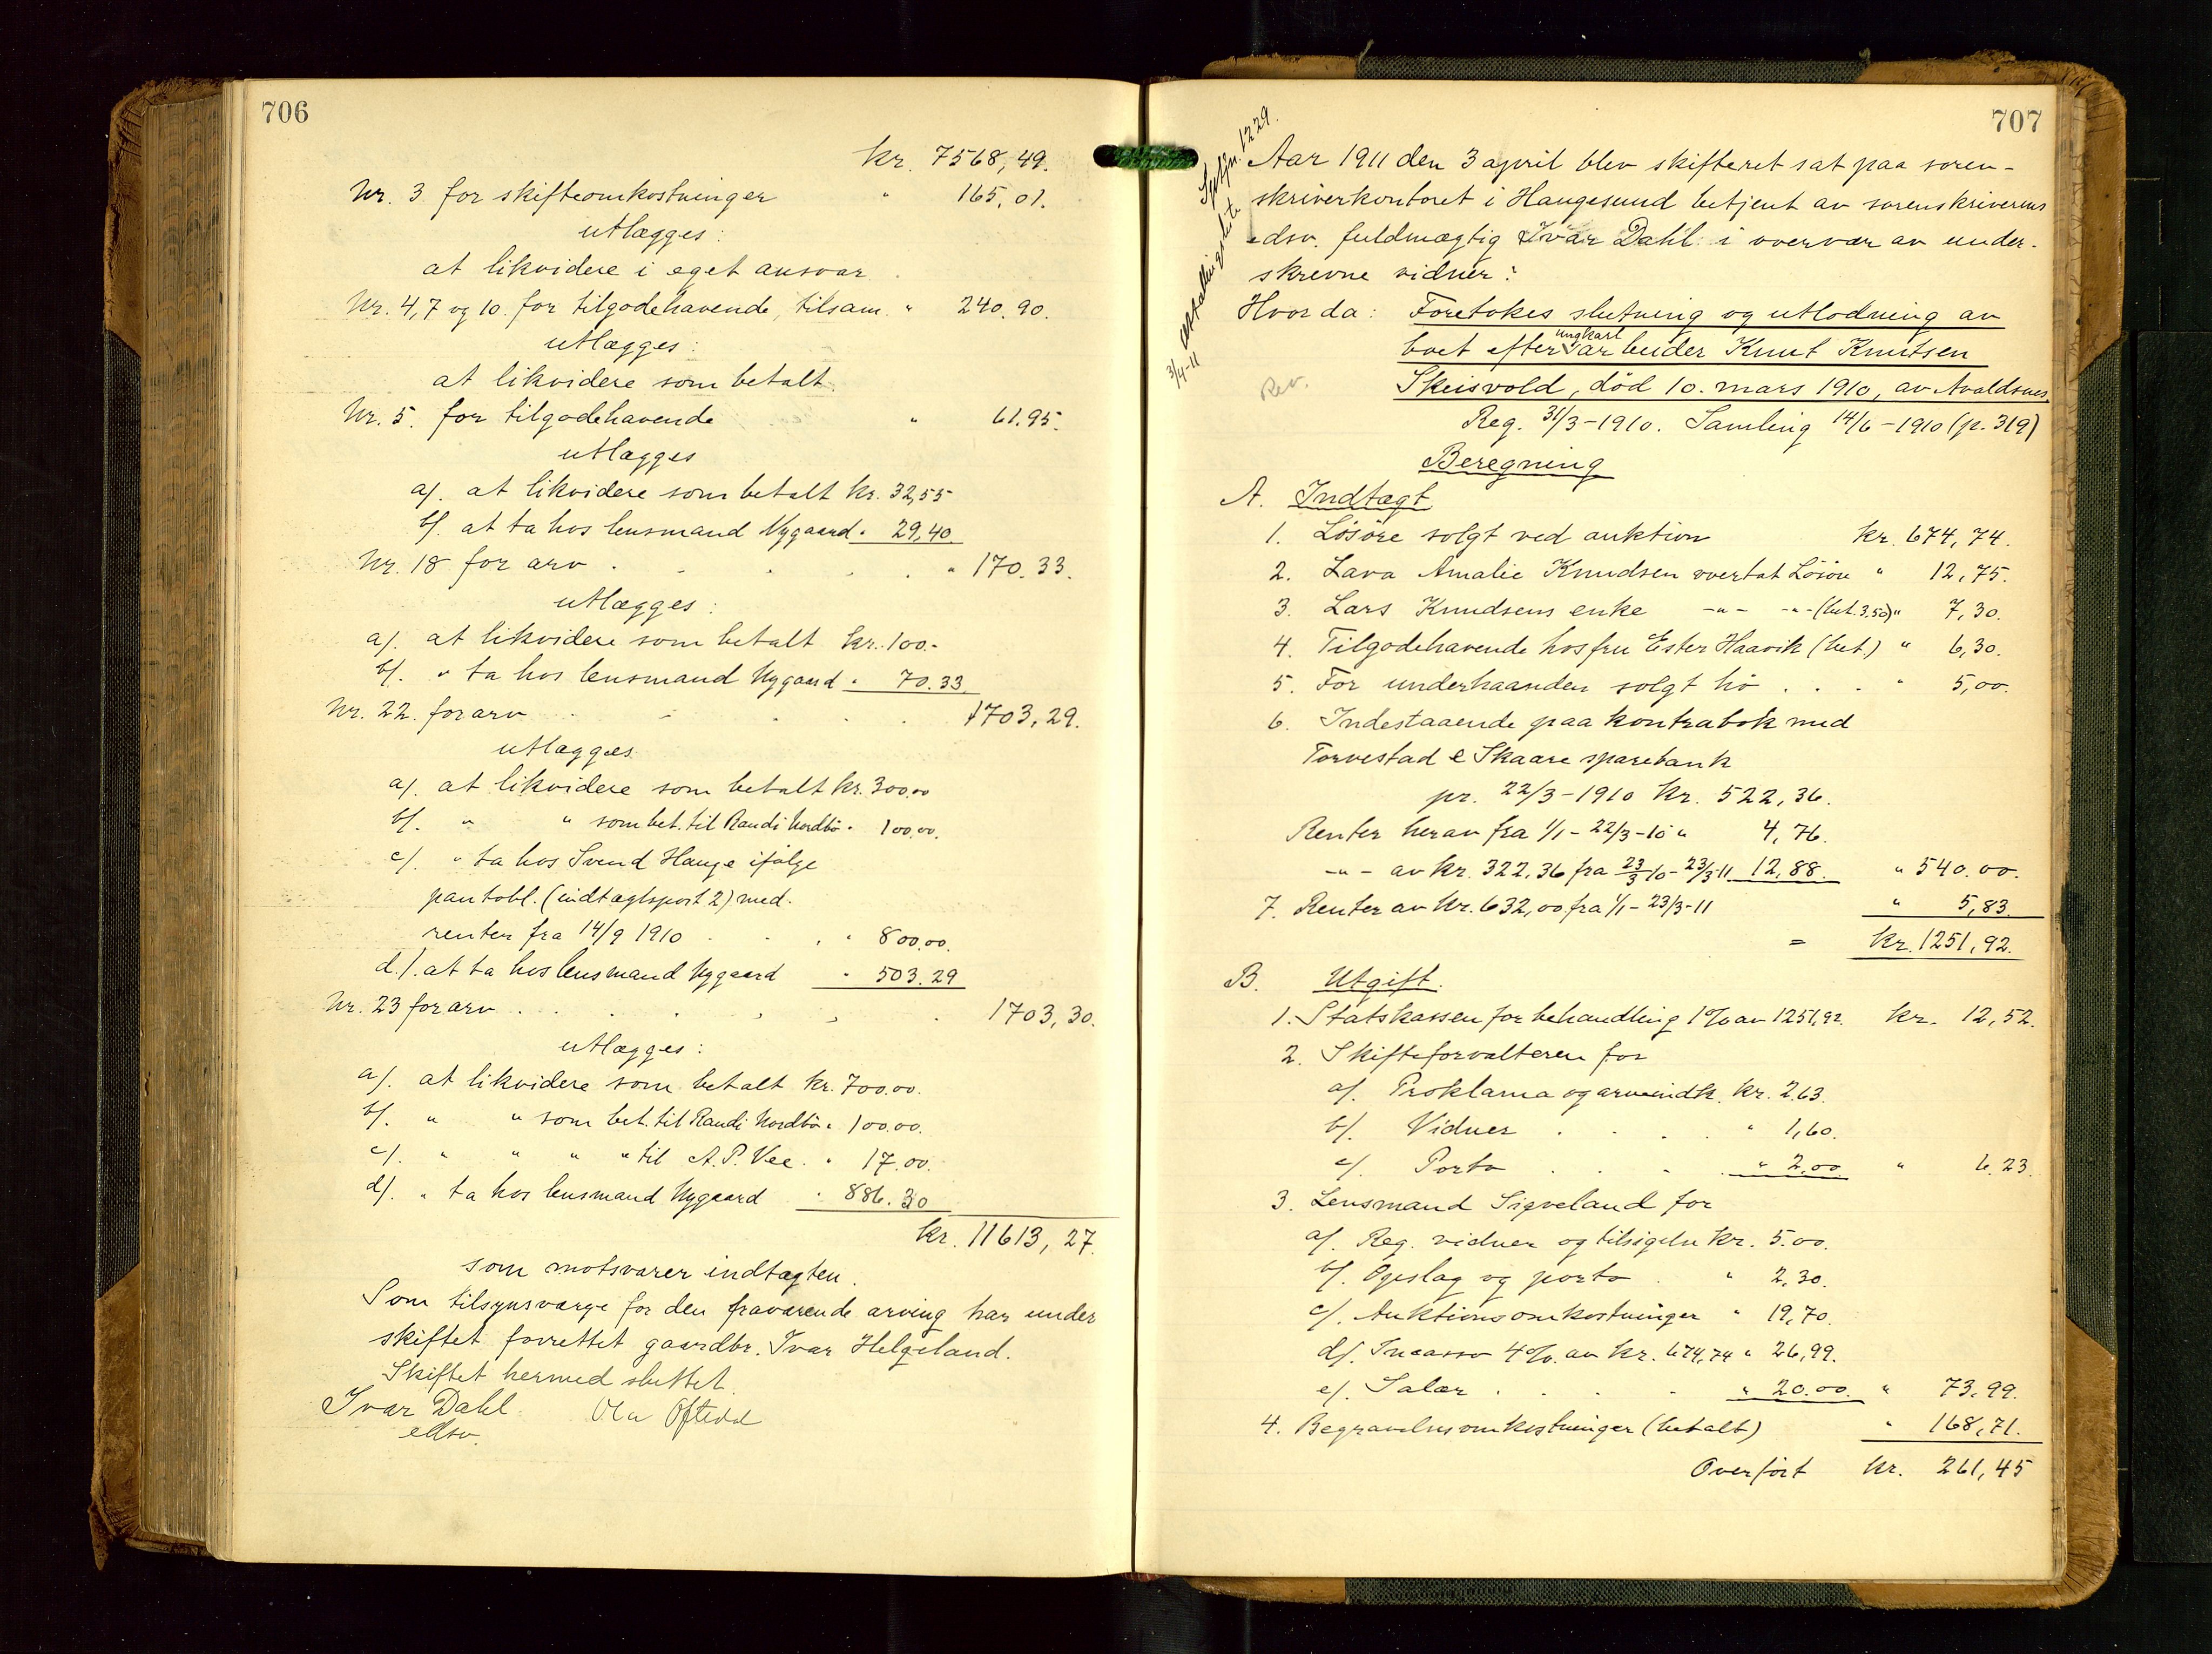 706
kr. 7568,49.
Nr. 3 for skifteomkostninger " 165,01.
utlægges:
at likvidere i eget ansvar.
Nr. 4, 7 og 10. for tilgodehavende, tilsam. " 240.90.
utlægges:
at likvidere som betalt.
Nr. 5. for tilgodehavende " 61.95.
utlægges
a/. at likvidere som betalt kr. 32,55
b/. at ta hos lensmand Nygaard " 29,40.
Nr. 18 for arv . . . . . " 170.33.
utlægges:
a/. at likvidere som betalt kr. 100.-
b/. " ta hos lensmand Nygaard " 70.33
Nr. 22. for arv . . . . 1703,29.
utlægges
a/. at likvidere som betalt kr. 300.00
b/. " " som bet. til Randi Nordbø " 100.00.
c/. " ta hos Svend Hauge ifølge
pantobl. (indtægtspost 2) med
renter fra 14/9 1910 . . . " 800.00.
d./. at ta hos lensmand Nygaard " 503.29
Nr. 23 for arv . . . . . . 1703,30.
utlægges:
a/. at likvidere som betalt kr. 700.00.
b/. " " som bet. til Randi Nordbø " 100.00.
c/. " " " " til A. P. Vee. " 17.00.
d/. " ta hos lensmand Nygaard " 886.30
kr. 11613,27.
som motsvarer indtægten.
Som tilsynsværge for den fraværende arving har under
skiftet forrettet gaardbr. Ivar Helgeland.
Skiftet hermed sluttet.
Ivar Dahl Ola Oftedal
edsv.
707
Sptfr. 1229.
3/4-11
Rev.
Aar 1911 den 3 april blev skifteret sat paa soren-
skriverkontoret i Haugesund betjent av sorenskriverens
edsv. fuldmægtig Ivar Dahl i overvær av under-
skrevne vidner:
Hvor da: Foretokes slutning og utlodning av
boet efter ungkarl arbeider Knut Knutsen
Skeisvold, död 10. mars 1910, av Avaldsnes.
Reg. 31/3-1910. Samling 14/6-1910 (p. 319)
Beregning
A. Indtægt
1. Lösöre solgt ved auktion kr. 674,74.
2. Lava Amalie Knudsen overtat Lösöre " 12,75.
3. Lars Knudsens enke -"- -"- (bet. 3,50) " 7,30.
4. Tilgodehavende hos fru Ester Haavik (bet.) " 6,30.
5. For underhaanden solgt hö . . . " 5,00.
6. Indestaaende paa kontrabok med
Torvestad & Skaare sparebank
pr. 22/3-1910 kr. 522,36.
Renter herav fra 1/1-22/3-10 " 4,76.
-"- av kr. 322,36 fra 23/3 10-23/3-11 12,88. " 540.00.
7. Renter av kr. 632,00 fra 1/1-23/3-11 " 5,83.
= kr. 1251,92.
B. Utgift.
1. Statskassen for behandling 1% av 1251,92. kr. 12,52.
2. Skifteforvalteren for
a/. Proklama og arveindk. kr. 2.63.
b/. Vidner . . . . " 1,60.
c/. Porto . . . " 2,00 " 6.23.
3. Lensmand Sigveland for
a/. Reg. vidner og tilsigelse kr. 5.00.
b/. Opslag og porto . " 2,30.
c/. Auktionsomkostninger " 19,70.
d/. Incasso 4%. av kr. 674,74 " 26,99.
e/. Salær . . . . " 20.00. " 73.99.
4. Begravelsesomkostninger (betalt) " 168,71.
Overfört kr. 261,45